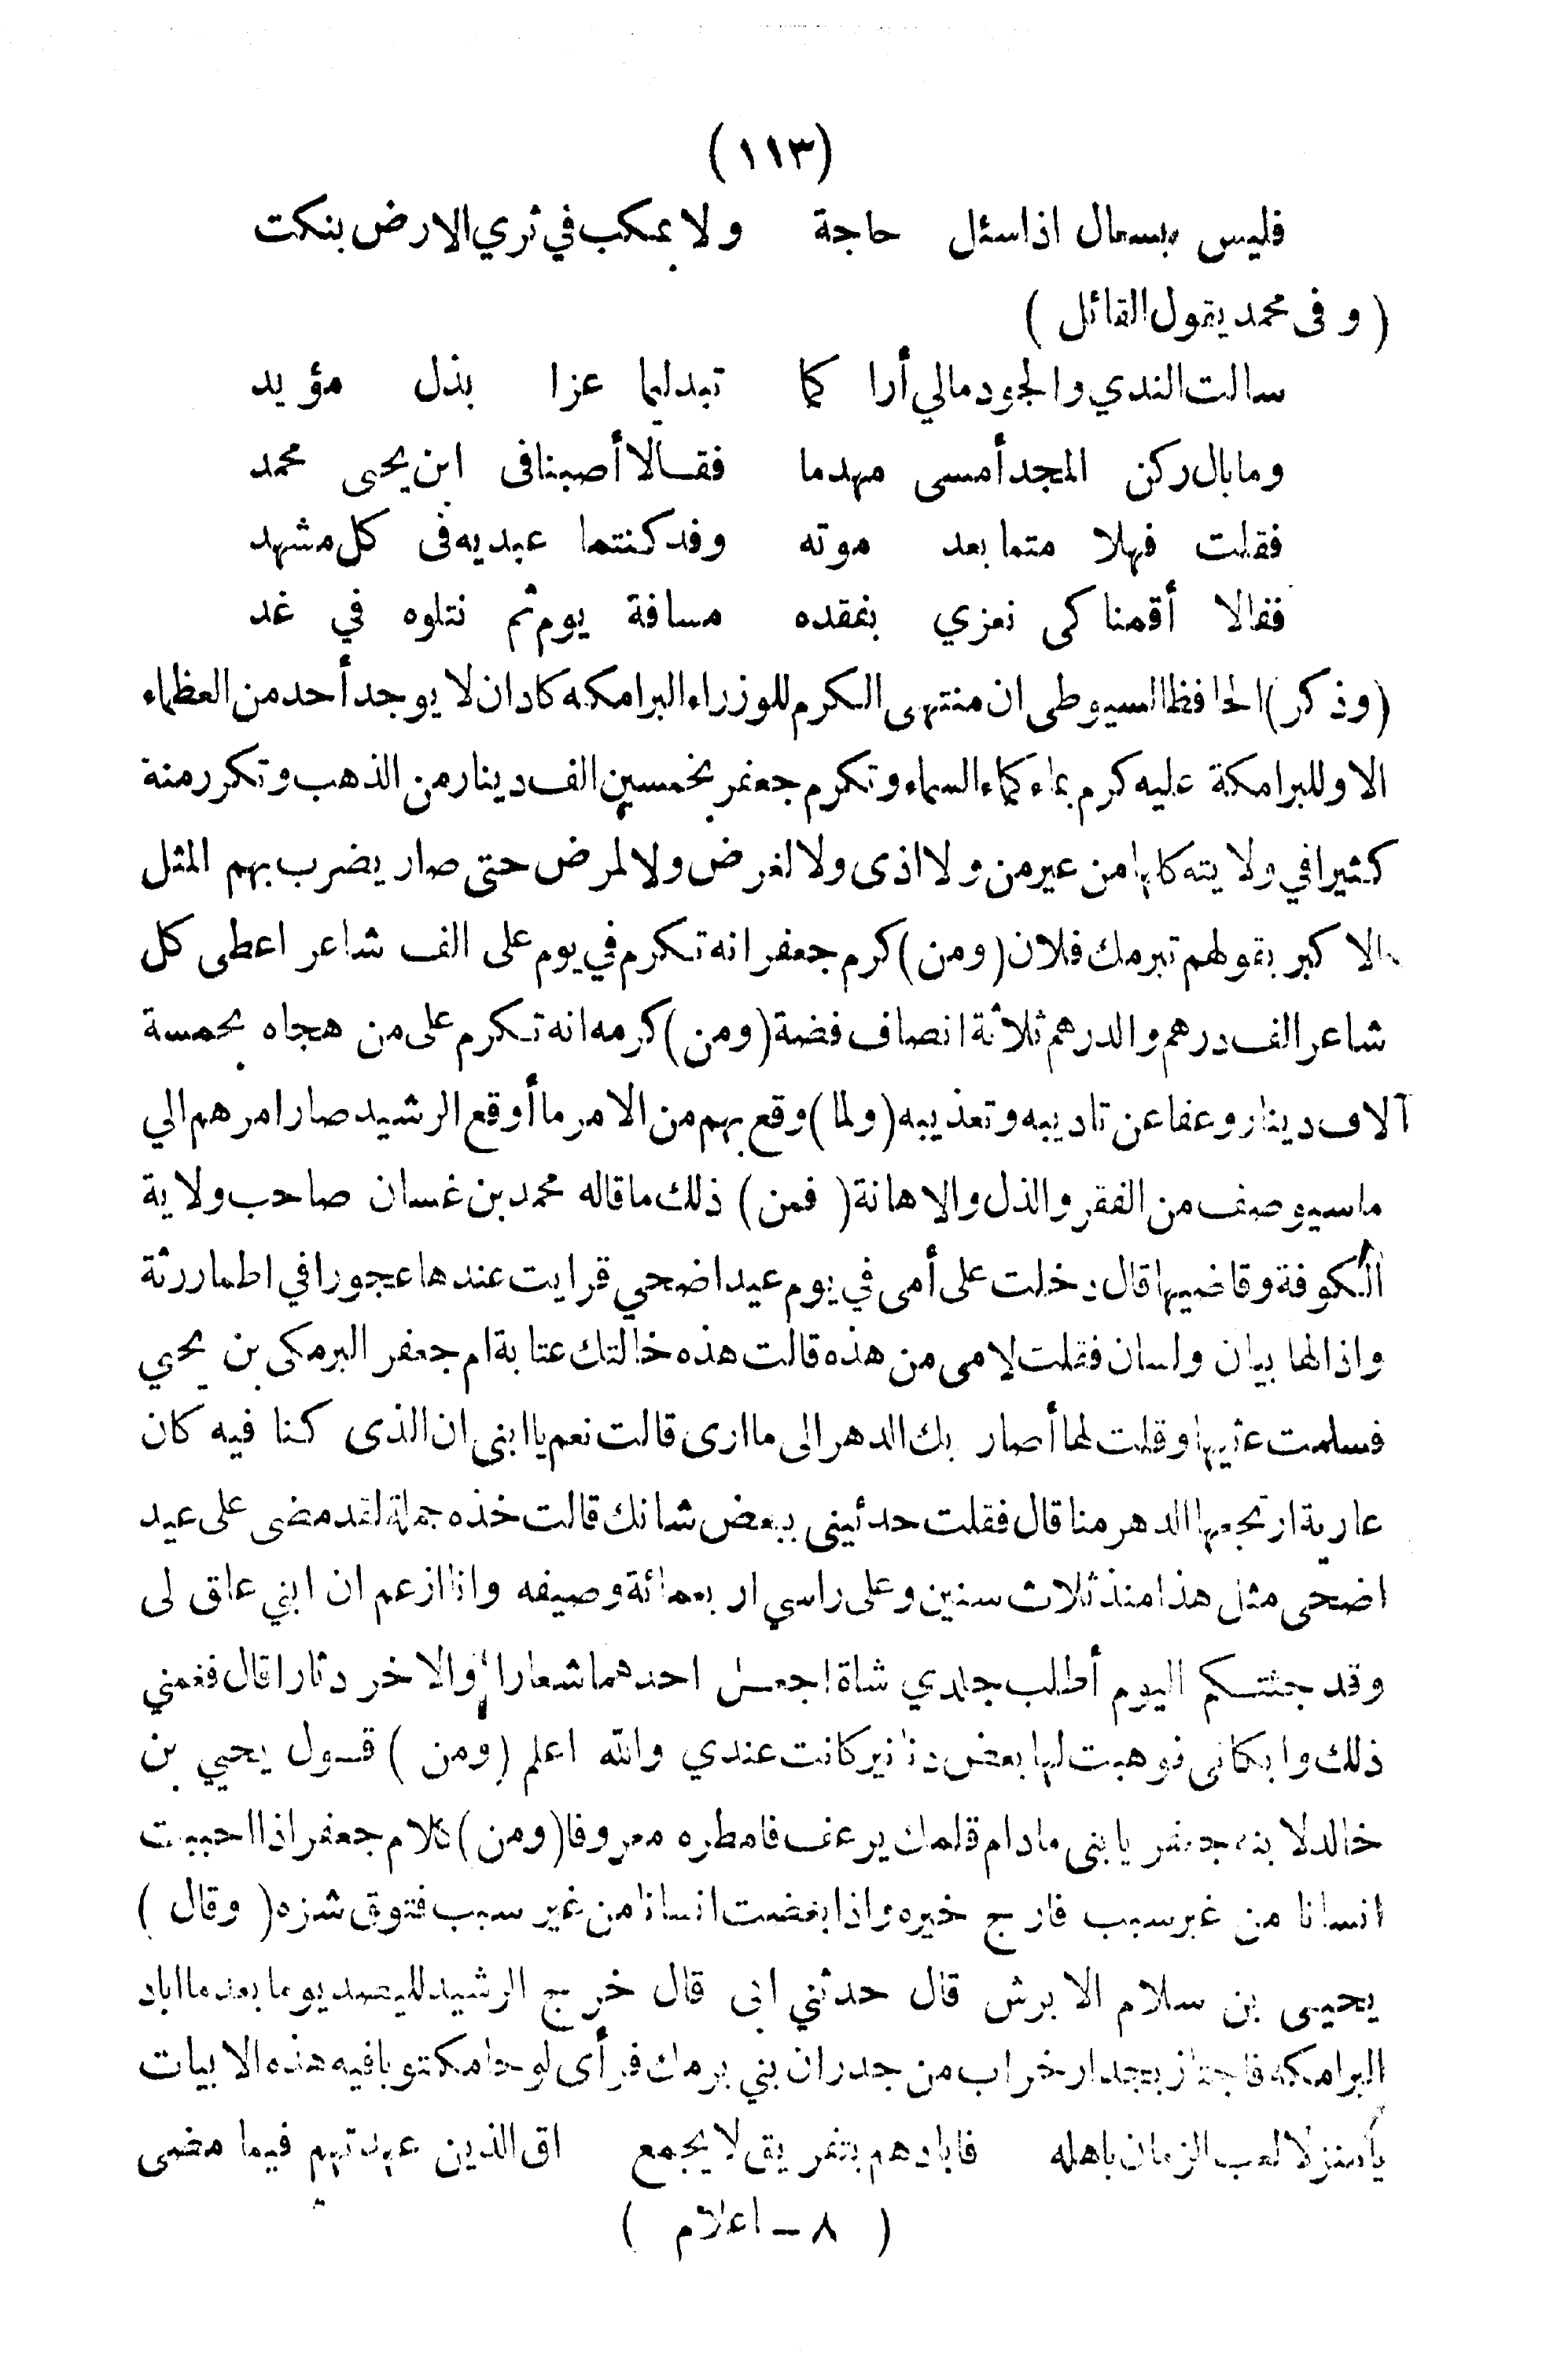 (١١٣)
فليس بسعال اذا سئل حاجة ولا بمكب في ثري الارض بنكت
( وفى محمد يقول القائل )
سالت الندي والجود مالي أرا كما تبدلتما عزا بذل مؤيد
وما بال ركن المجد أمسى مهدما فقالا أصبنا فى ابن يحيى محمد
فقلت فهلا متما بعد موته وقد كنتما عبديه فى كل مشهد
فقالا أقمنا كى نعزي بفقده مسافة يوم ثم نتلوه في غد
(وذكر) الحافظ السيوطى ان منتهى الكرم للوزراء البرامكه كاد ان لا يوجد أحد من العظماء
الا وللبرامكة عليه كرم بماء كماء السماء وتكرم جعفر بخمسين الف دينار من الذهب وتكرر منة
كثيرا في ولايته كلها من غير من ولا اذى ولا لغرض ولا لمرض حتى صار يضرب بهم المثل
الاكبر بقولهم تبرمك فلان (ومن) كرم جعفر انه تكرم في يوم على الف شاعر اعطى كل
شاعر الف درهم والدرهم ثلاثة انصاف فضة (ومن) كرمه انه تكرم على من هجاه بخمسة
آلاف دينار وعفا عن تاديبه وتعذيبه (ولما) وقع بهم من الامر ما أوقع الرشيد صار امرهم الي
ما سيوصف من الفقر والذل والاهانة (فمن) ذلك ما قاله محمد بن غسان صاحب ولاية
الكوفة وقاضيها قال دخلت على أمى في يوم عيد اضحي فرايت عندها عجوزا في اطمار رثة
واذا لها بيان ولسان فقلت لامى من هذه قالت هذه خالتك عتابة ام جعفر البرمكى بن يحيي
فسلمت عليها وقلت لها أصار بك الدهر الى ما ارى قالت نعم يا ابنى ان الذى كنا فيه كان
عارية ارتجعها الدهر منا قال فقلت حدثينى ببعض شانك قالت خذه جملة لقد مضى على عيد
اضحى مثل هذا منذ ثلاث سنين وعلى راسي اربعمائة وصيفه وانا ازعم ان ابني عاق لى
وقد جئتكم اليوم أطلب جلدي شاة اجعل احدهما شعارا والاخر دثارا قال فغمني
ذلك وابكانى فوهبت لها بعض دنانير كانت عندي والله اعلم (ومن) قول يحيي بن
خالد لابنه جعفر يا بنى مادام قلمك يرعف فامطره معروفا (ومن) كلام جعفر اذا احببت
انسانا من غير سبب فارج خيره واذا بغضت انسانا من غير سبب فتوق شره (وقال)
يحيى بن سلام الابرش قال حدثني ابى قال خرج الرشيد للصيد يوما بعد ما اباد
البرامكه فاجتاز بجدار خراب من جدران بني برمك فرأى لوحا مكتوبا فيه هذه الابيات
يا منزلا لعب الزمان باهله فابادهم بتفريق لا يجمع اق الذين عهدتهم فيما مضى
( ٨ ــ اعلام )